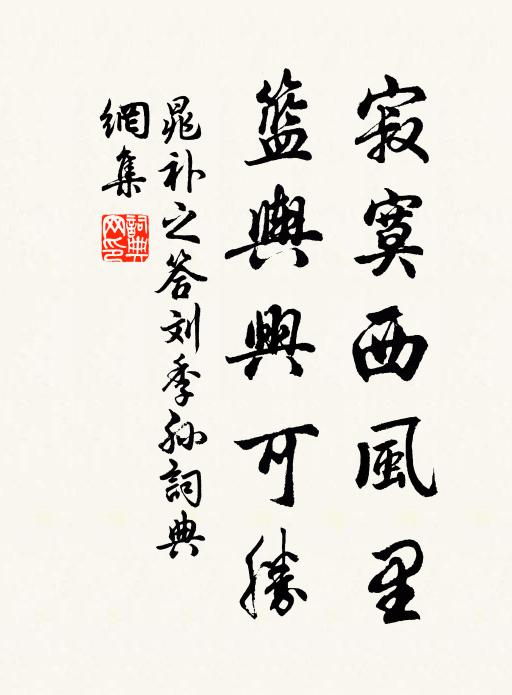 寂寞西風里
籃輿興可勝
晁补之答刘季孙詞典
網集
詞典网印